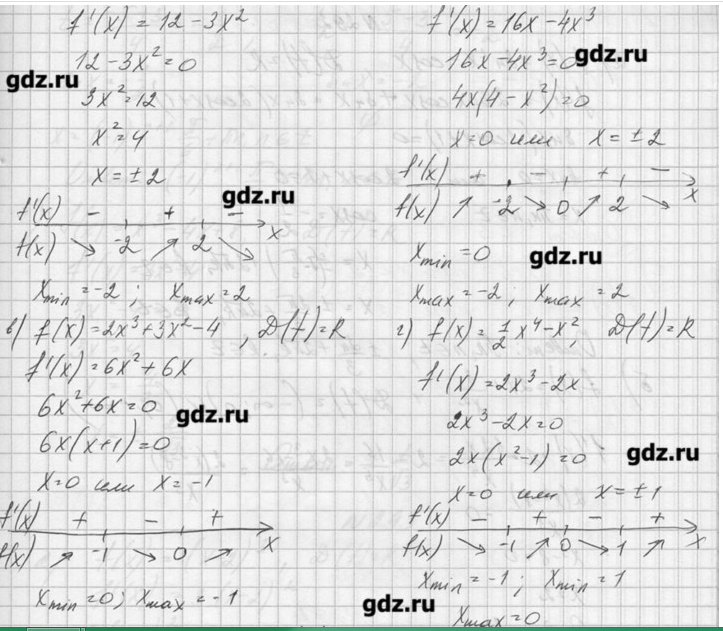 f'(x) = 12 - 3x²
12 - 3x² = 0
gdz.ru
3x² = 12
x² = 4
x = ± 2
gdz.ru
f'(x) - + -
f(x) ↘ -2 ↗ 2 ↘ x
x min = -2 ; x max = 2
в) f(x) = 2x³ + 3x² - 4 , D(f) = R
f'(x) = 6x² + 6x
6x² + 6x = 0
gdz.ru
6x(x+1) = 0
x = 0 или x = -1
f'(x) + - +
f(x) ↗ -1 ↘ 0 ↗ x
x min = 0 ; x max = -1
f'(x) = 16x - 4x³
16x - 4x³ = 0
gdz.ru
4x(4 - x²) = 0
x = 0 или x = ± 2
f'(x) + - + -
f(x) ↗ -2 ↘ 0 ↗ 2 ↘ x
x min = 0
gdz.ru
x max = -2 ; x max = 2
г) f(x) = 1/2 x⁴ - x², D(f) = R
f'(x) = 2x³ - 2x
2x³ - 2x = 0
2x(x² - 1) = 0
gdz.ru
x = 0 или x = ± 1
f'(x) - + - +
f(x) ↘ -1 ↗ 0 ↘ 1 ↗ x
x min = -1 ; x min = 1
gdz.ru
x max = 0